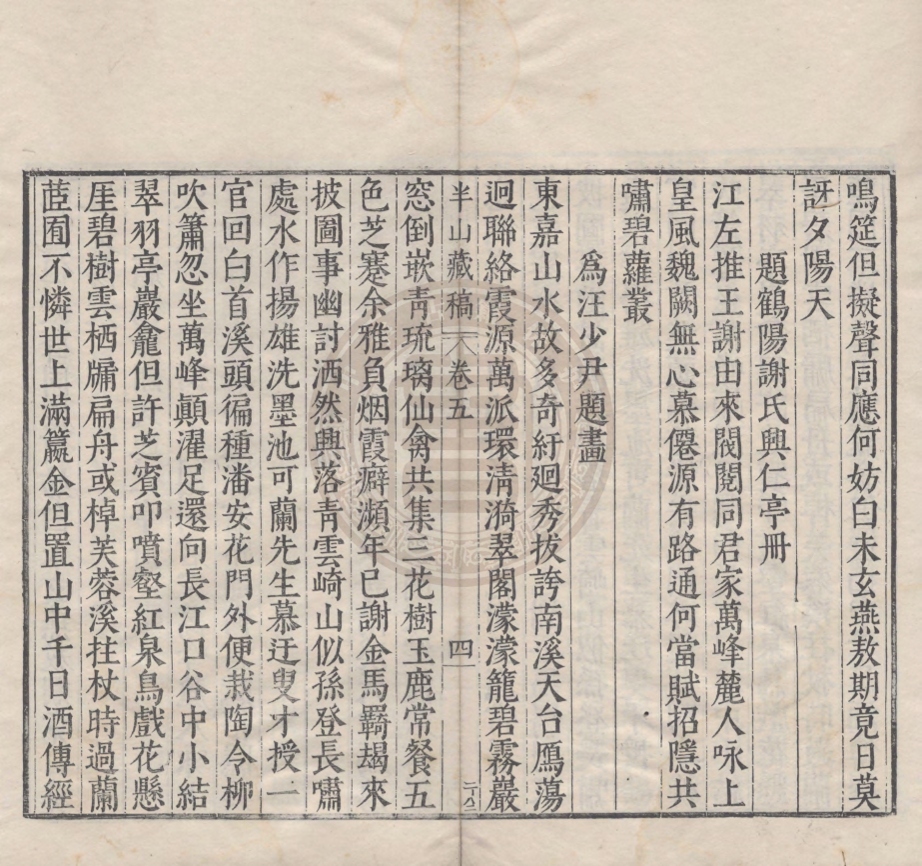 鳴筵但擬聲同應何妨白未玄燕敖期竟日莫
訝夕陽天
題鶴陽謝氏興仁亭冊
江左推王謝由來閥閱同君家萬峰麓人咏上
皇風魏闕無心慕僊源有路通何當賦招隱共
嘯碧蘿叢
為汪少尹題畫
東嘉山水故多奇紆廻秀拔誇南溪天台鴈蕩
迥聯絡霞源萬派環清漪翠閣濛濛籠碧霧巖
半山藏稿 卷五 四
窓倒嵌青琉璃仙禽共集三花樹玉鹿常餐五
色芝蹇余雅負烟霞癖瀕年已謝金馬羇朅來
披圖事幽討洒然興落青雲崎山似孫登長嘯
處水作揚雄洗墨池可蘭先生慕迂叟才授一
官回白首溪頭徧種潘安花門外便栽陶令柳
吹簫忽坐萬峰顛濯足還向長江口谷中小結
翠羽亭巖龕但許芝賓叩噴壑紅泉鳥戲花懸
厓碧樹雲栖牖扁舟或棹芙蓉溪拄杖時過蘭
茝囿不憐世上滿籯金但置山中千日酒傳經